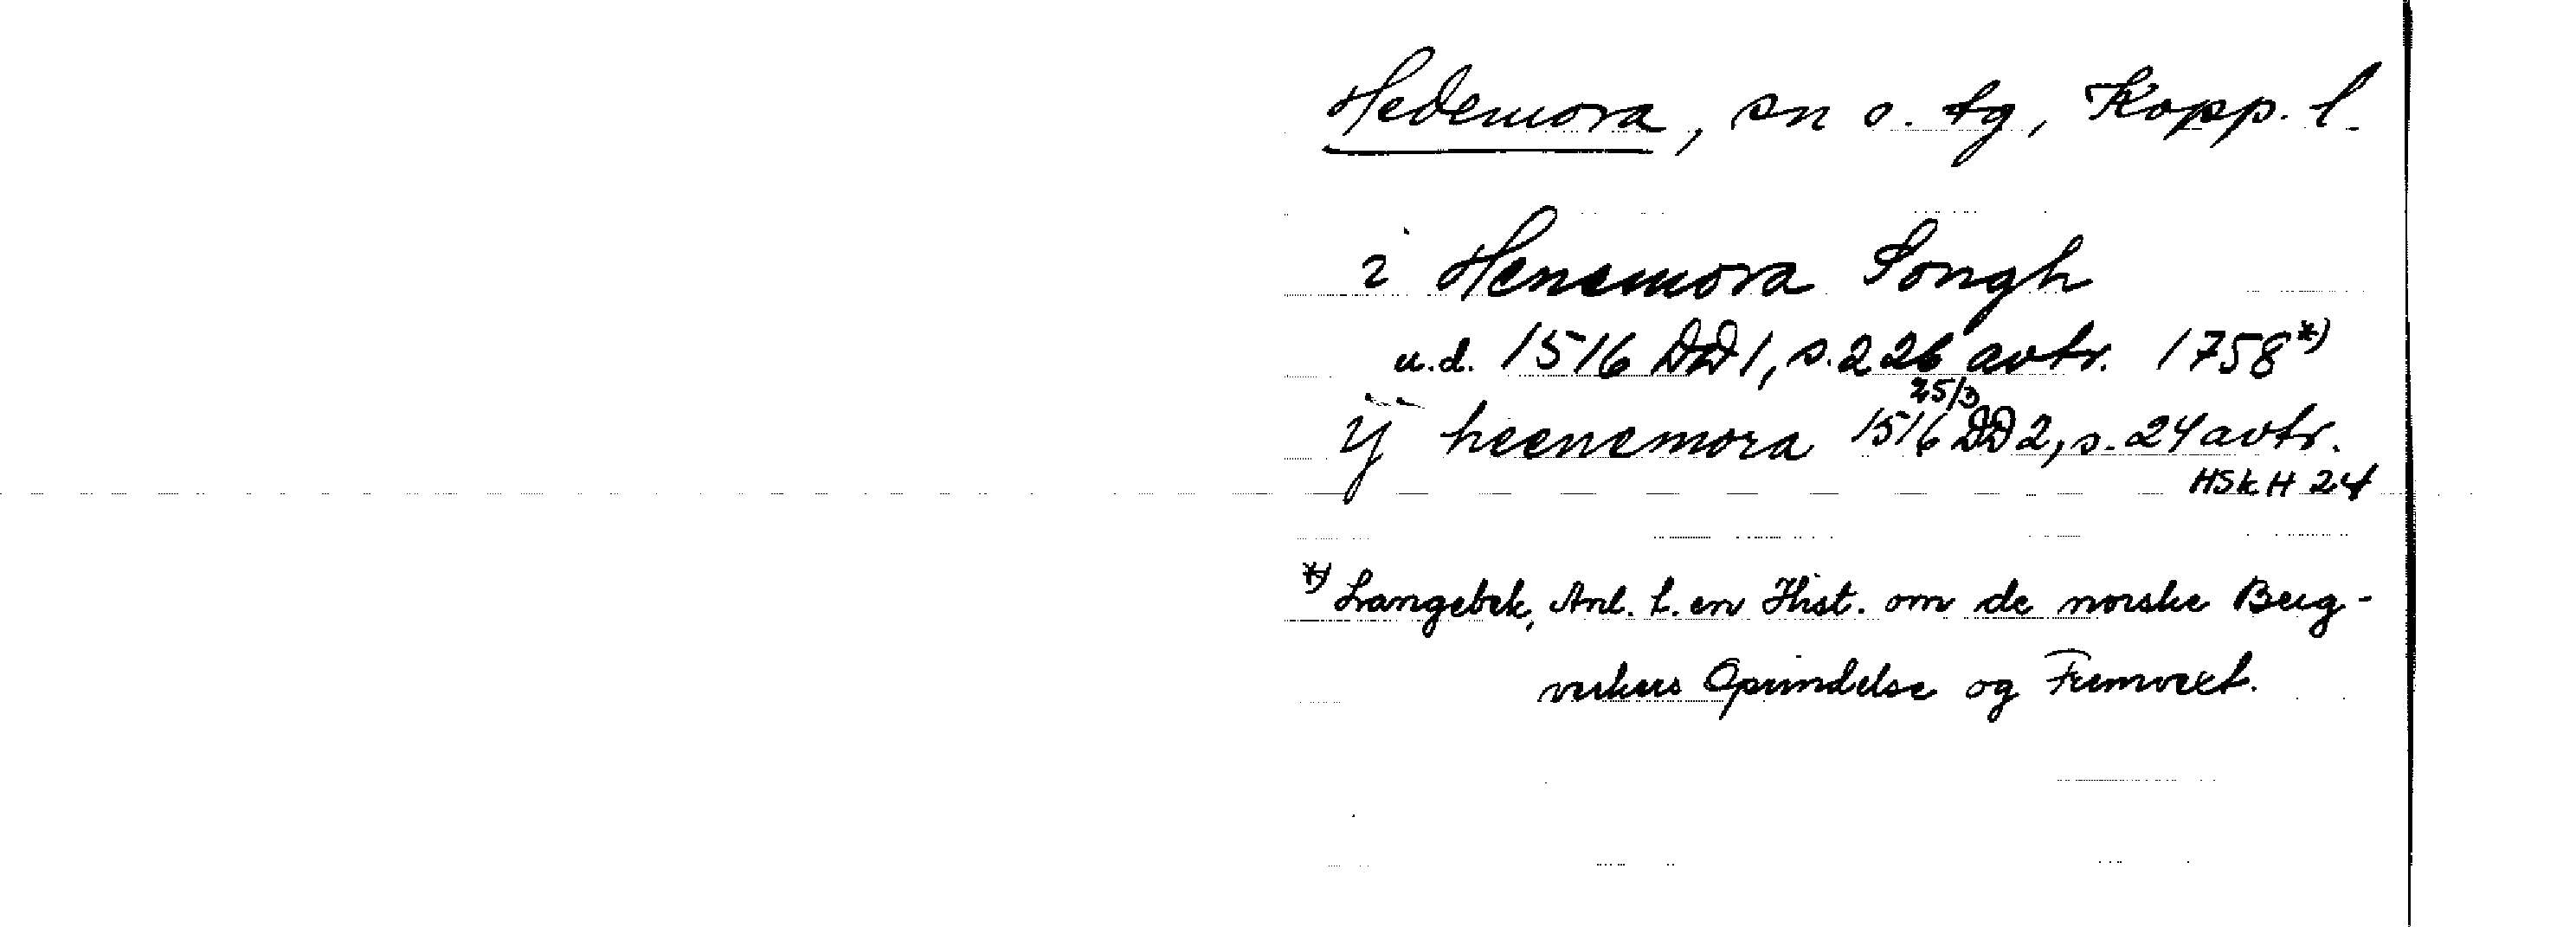 Hedemora, sn o. tg, Kopp. l.
i Henemora Songh
u.d. 1516 DD1, s. 226 avtr. 1758*)
ij heenemora 25/3 1516 DD2, s. 24 avtr.
HSkH 24
*) Langebek, Anl. t. en Hist. om de norske Berg-
verkers Oprindelse og Fremvext.